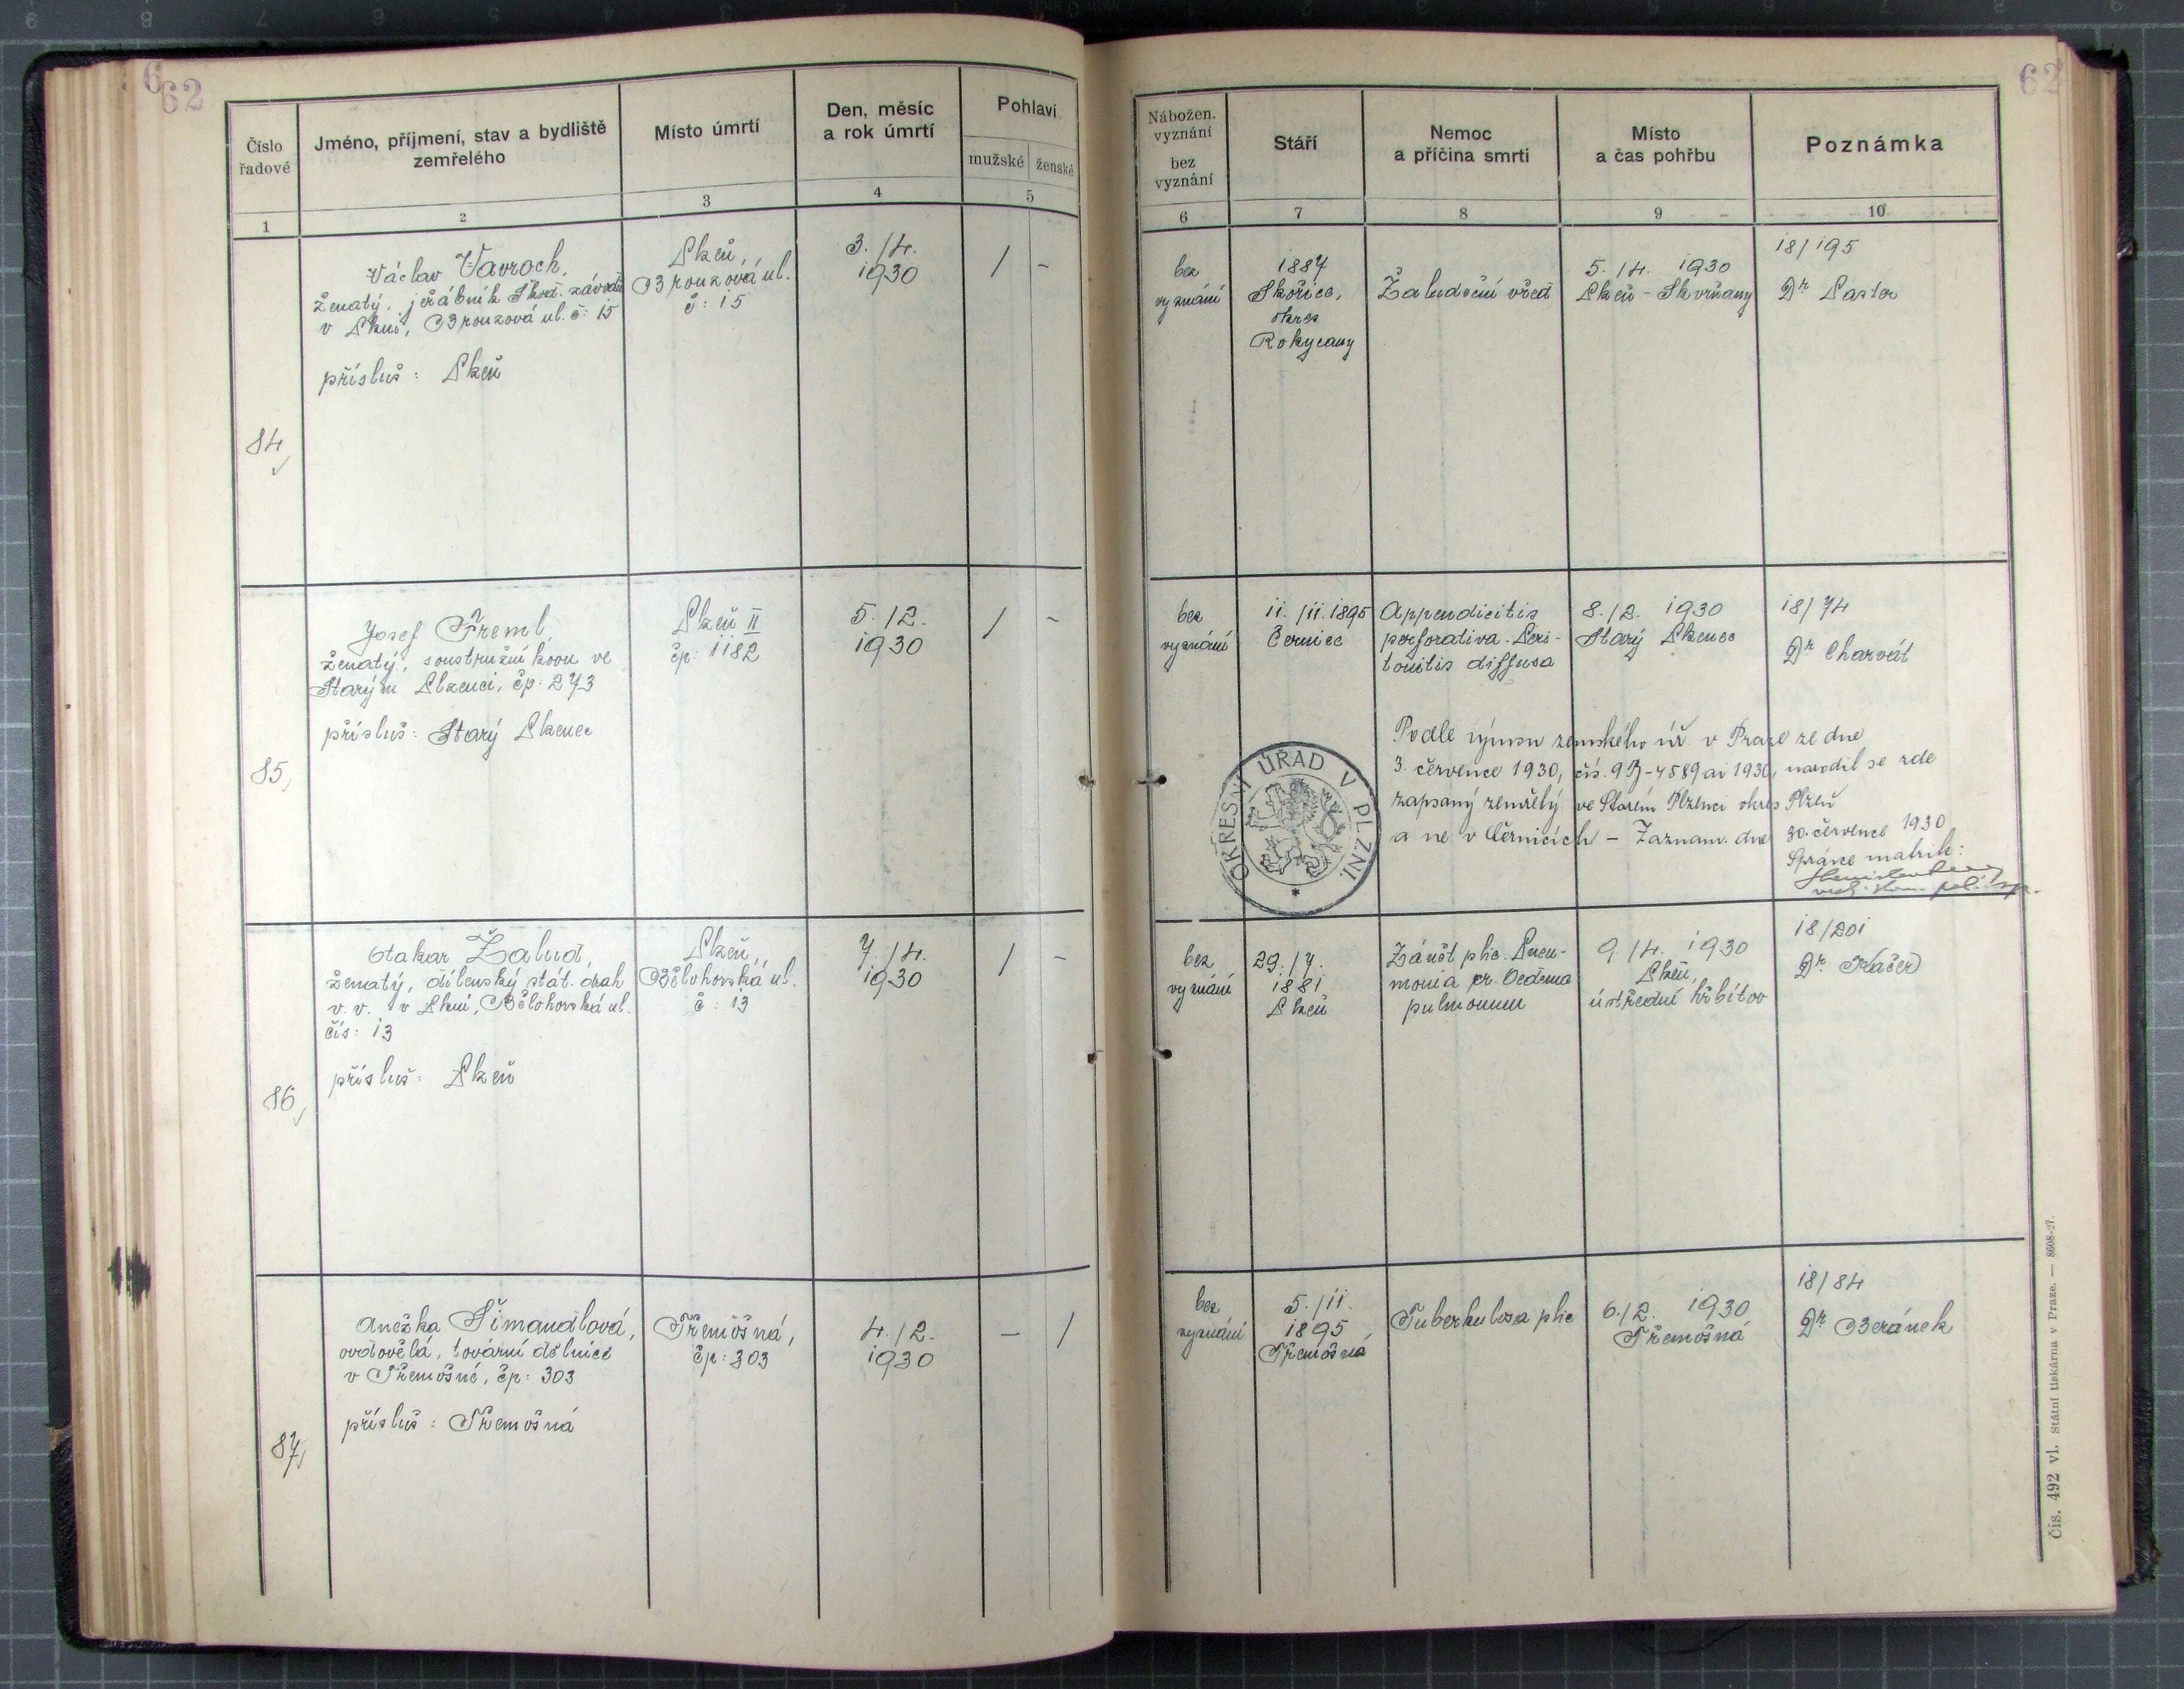 62
62
Číslo
řadové
Jméno, příjmení, stav a bydliště
zemřelého
Místo úmrtí
Den, měsíc
a rok úmrtí
Pohlaví
mužské
ženské
1
2
3
4
5
Nábožen.
vyznání
bez
vyznání
Stáří
Nemoc
a příčina smrti
Místo
a čas pohřbu
Poznámka
6
7
8
9
10
84
Václav Vavroch,
ženatý, jeřábník Škod. závodů
v Plzni, Brouzová ul. č: 15
přísluš: Plzeň
Plzeň,
Brouzová ul.
č: 15
3./4.
1930
/
-
bez
vyznání
1887
Skořice,
okres
Rokycany
Žaludeční vřed
5./4. 1930
Plzeň - Skvrňany
18/195
Dr Pastor
85
Josef Treml,
ženatý, soustružní kovu ve
Starým Plzenci, čp: 273
přísluš: Starý Plzenec
Plzeň II
čp: 1182
5./2.
1930
/
-
bez
vyznání
11./11. 1895
Černice
Appendicitis
perforativa. Peri-
tonitis diffusa
8./2. 1930
Starý Plzenec
18/74
Dr Charvát
Podle výnosu zemského úř v Praze ze dne
3. července 1930, čís. 9B-4589 ai 1930, narodil se zde
zapsaný zemřelý ve Starém Plzenci okres Plzeň
a ne v Černicích - Zaznam. dne 30. července 1930
Správce matrik:
OKRESNÍ ÚŘAD V PLZNI.
86
Otakar Žalud,
ženatý, dílenský stát. drah
v. v. v Plzni, Bělohorská ul.
čís: 13
přísluš: Plzeň
Plzeň,
Bělohorská ul.
č: 13
7./4.
1930
/
-
bez
vyznání
29./7.
1881
Plzeň
Zánět plic. Pneu-
monia cr. Oedema
pulmonum
9/4. 1930
Plzeň,
ústřední hřbitov
18/201
Dr. Kačer
87
Anežka Šimandlová,
ovdovělá, tovární dělnice
v Třemošné, čp: 303
přísluš: Třemošná
Třemošná,
čp: 303
4./2.
1930
-
/
bez
vyznání
5./11.
1895
Třemošná
Tuberkulosa plic
6./2. 1930
Třemošná
18/84
Dr Beránek
Čís. 492 vl. státní tiskárna v Praze. — 8608-27.